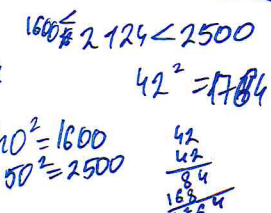 1600 < 2124 < 2500
42² = 1764
40² = 1600
50² = 2500
42
42
84
168